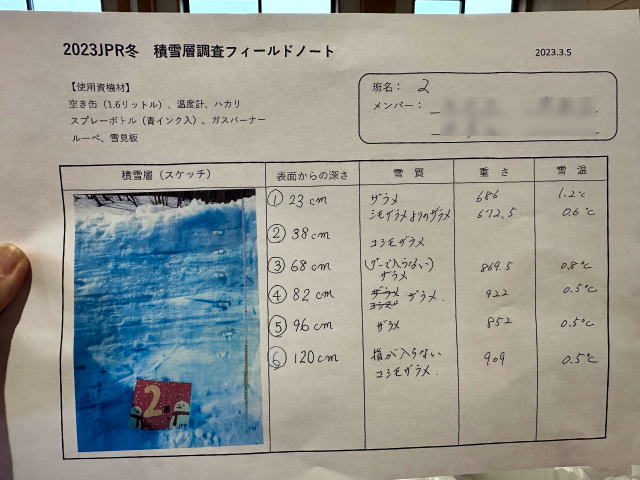 2023JPR冬　積雪層調査フィールドノート
2023.3.5
【使用資機材】
空き缶（1.6リットル）、温度計、ハカリ
スプレーボトル（青インク入）、ガスバーナー
ルーペ、雪見板
班名： 2
メンバー：
積雪層（スケッチ） 表面からの深さ 雪 質 重 さ 雪 温
① 23 cm ザラメ 686 1.2℃
シモザラメよりのザラメ 672.5 0.6℃
② 38 cm
コシモザラメ
③ 68 cm (グーで入らない) 869.5 0.8℃
ザラメ
④ 82 cm ザラメ 922 0.5℃
⑤ 96 cm ザラメ 852 0.5℃
⑥ 120 cm 指が入らない 909 0.5℃
コシモザラメ.
2
JPR